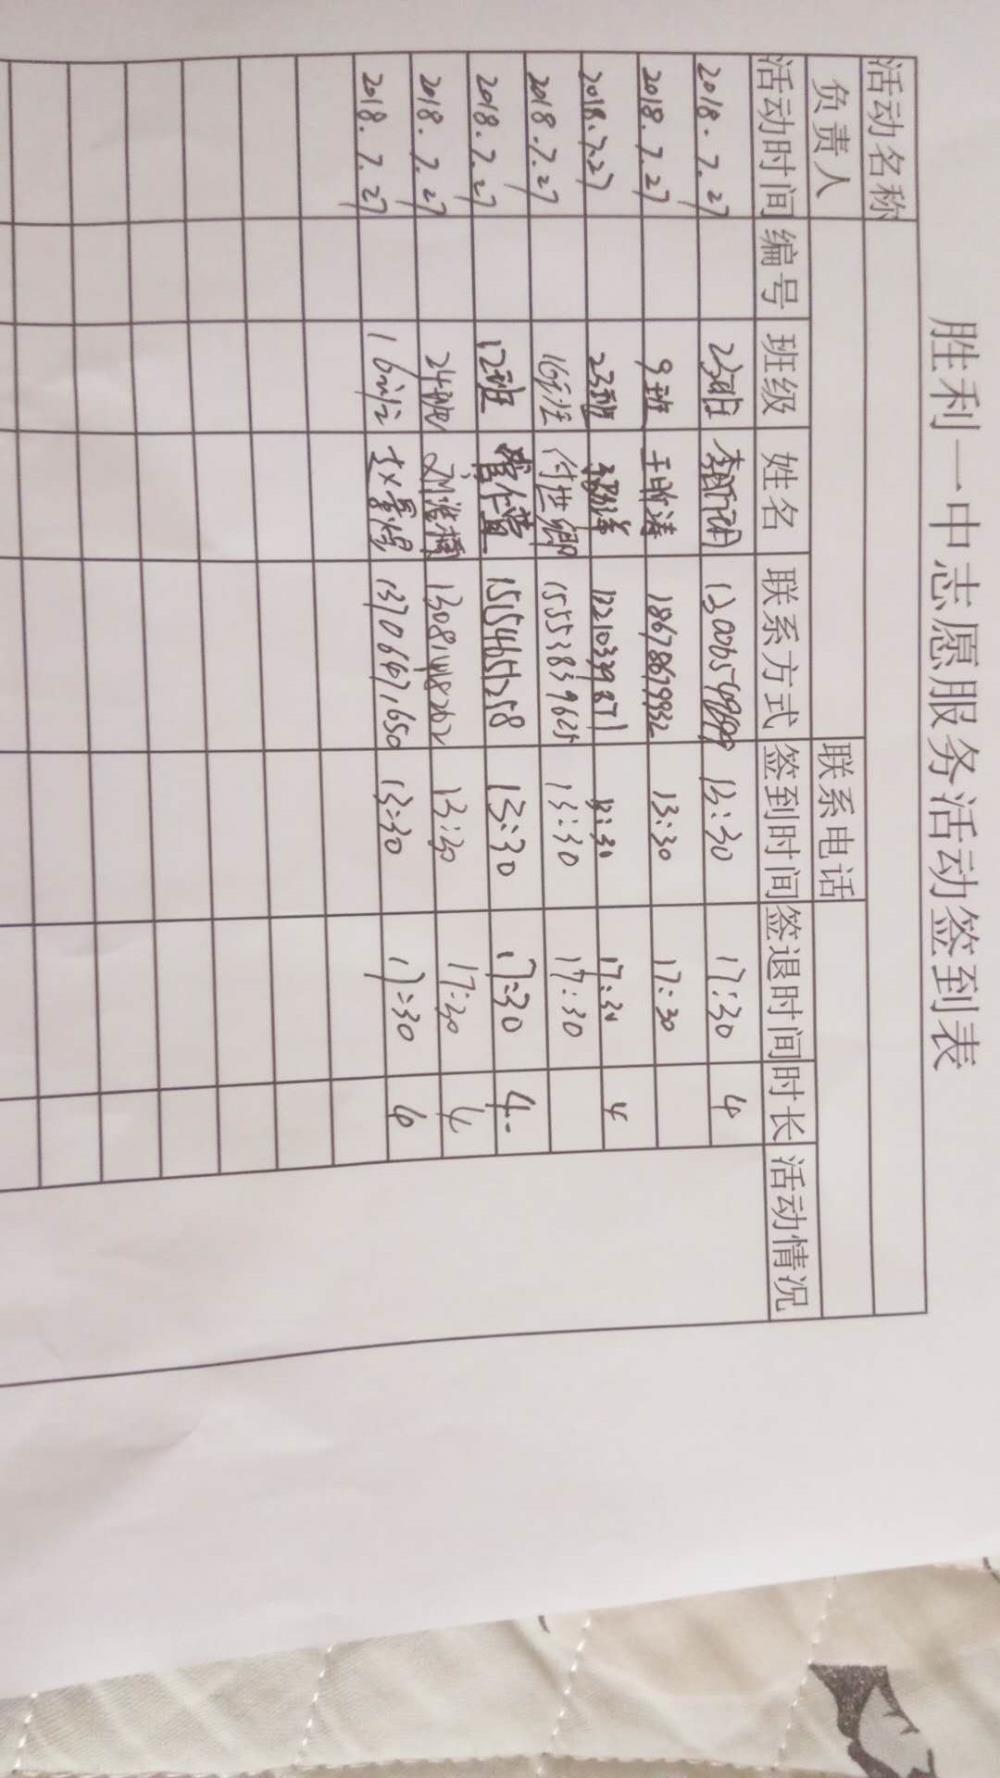 胜利一中志愿服务活动签到表
活动名称
负责人 联系电话
活动时间 编号 班级 姓名 联系方式 签到时间 签退时间 时长 活动情况
2018.7.27 23班 13:30 17:30 4
2018.7.27 9班 18678679932 13:30 17:30
2018.7.27 23班 13:30 17:30 4
2018.7.27 16班 付世卿 15553839625 13:30 17:30
2018.7.27 12班 15154651258 13:30 17:30 4
2018.7.27 24班 13:30 17:30 4
2018.7.27 16班 赵景煜 13706471650 13:30 17:30 4